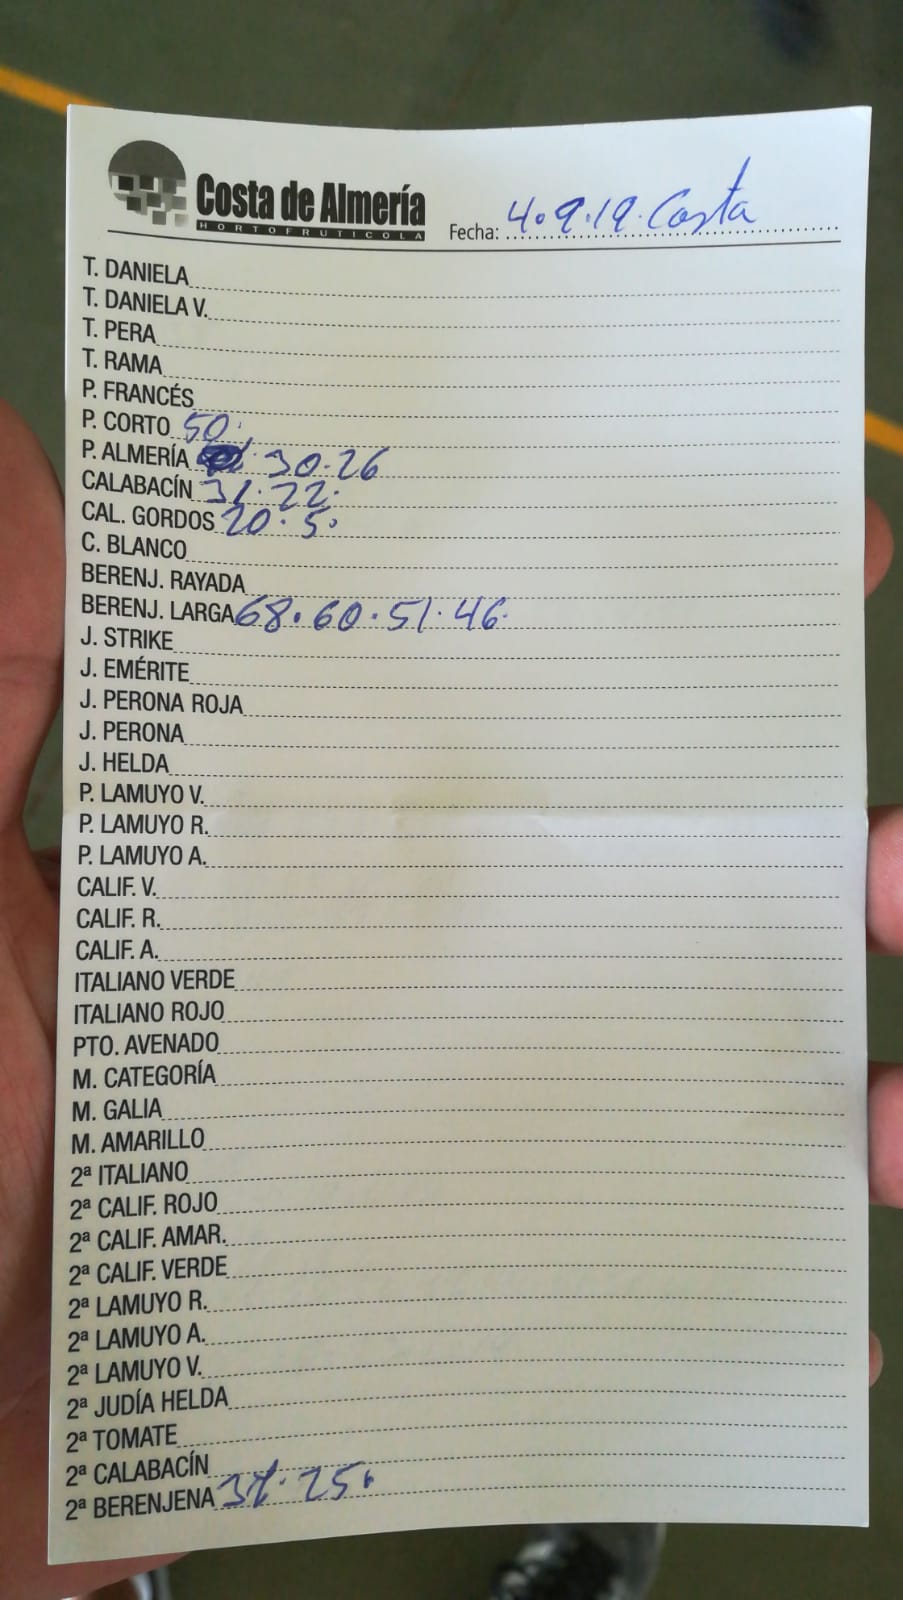 Costa de Almería
HORTOFRUTICOLA
Fecha: 4.9.19. Costa
T. DANIELA
T. DANIELA V.
T. PERA
T. RAMA
P. FRANCÉS
P. CORTO 50.
P. ALMERÍA 30.26
CALABACÍN 31.22.
CAL. GORDOS 20.5.
C. BLANCO
BERENJ. RAYADA
BERENJ. LARGA 68.60.51.46.
J. STRIKE
J. EMÉRITE
J. PERONA ROJA
J. PERONA
J. HELDA
P. LAMUYO V.
P. LAMUYO R.
P. LAMUYO A.
CALIF. V.
CALIF. R.
CALIF. A.
ITALIANO VERDE
ITALIANO ROJO
PTO. AVENADO
M. CATEGORÍA
M. GALIA
M. AMARILLO
2ª ITALIANO
2ª CALIF. ROJO
2ª CALIF. AMAR.
2ª CALIF. VERDE
2ª LAMUYO R.
2ª LAMUYO A.
2ª LAMUYO V.
2ª JUDÍA HELDA
2ª TOMATE
2ª CALABACÍN
2ª BERENJENA 25.